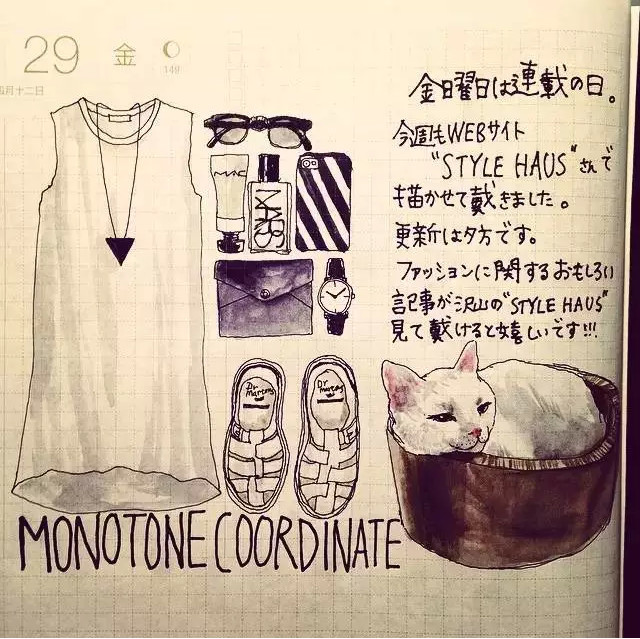 29 金
149
四月十二日
金曜日は連載の日。
今週もWEBサイト
"STYLE HAUS"さんで
描かせて戴きました。
更新は夕方です。
ファッションに関するおもしろい
記事が沢山の"STYLE HAUS"
見て戴けると嬉しいです!!!
MAC
NARS
Dr Martens
Dr Martens
MONOTONE COORDINATE